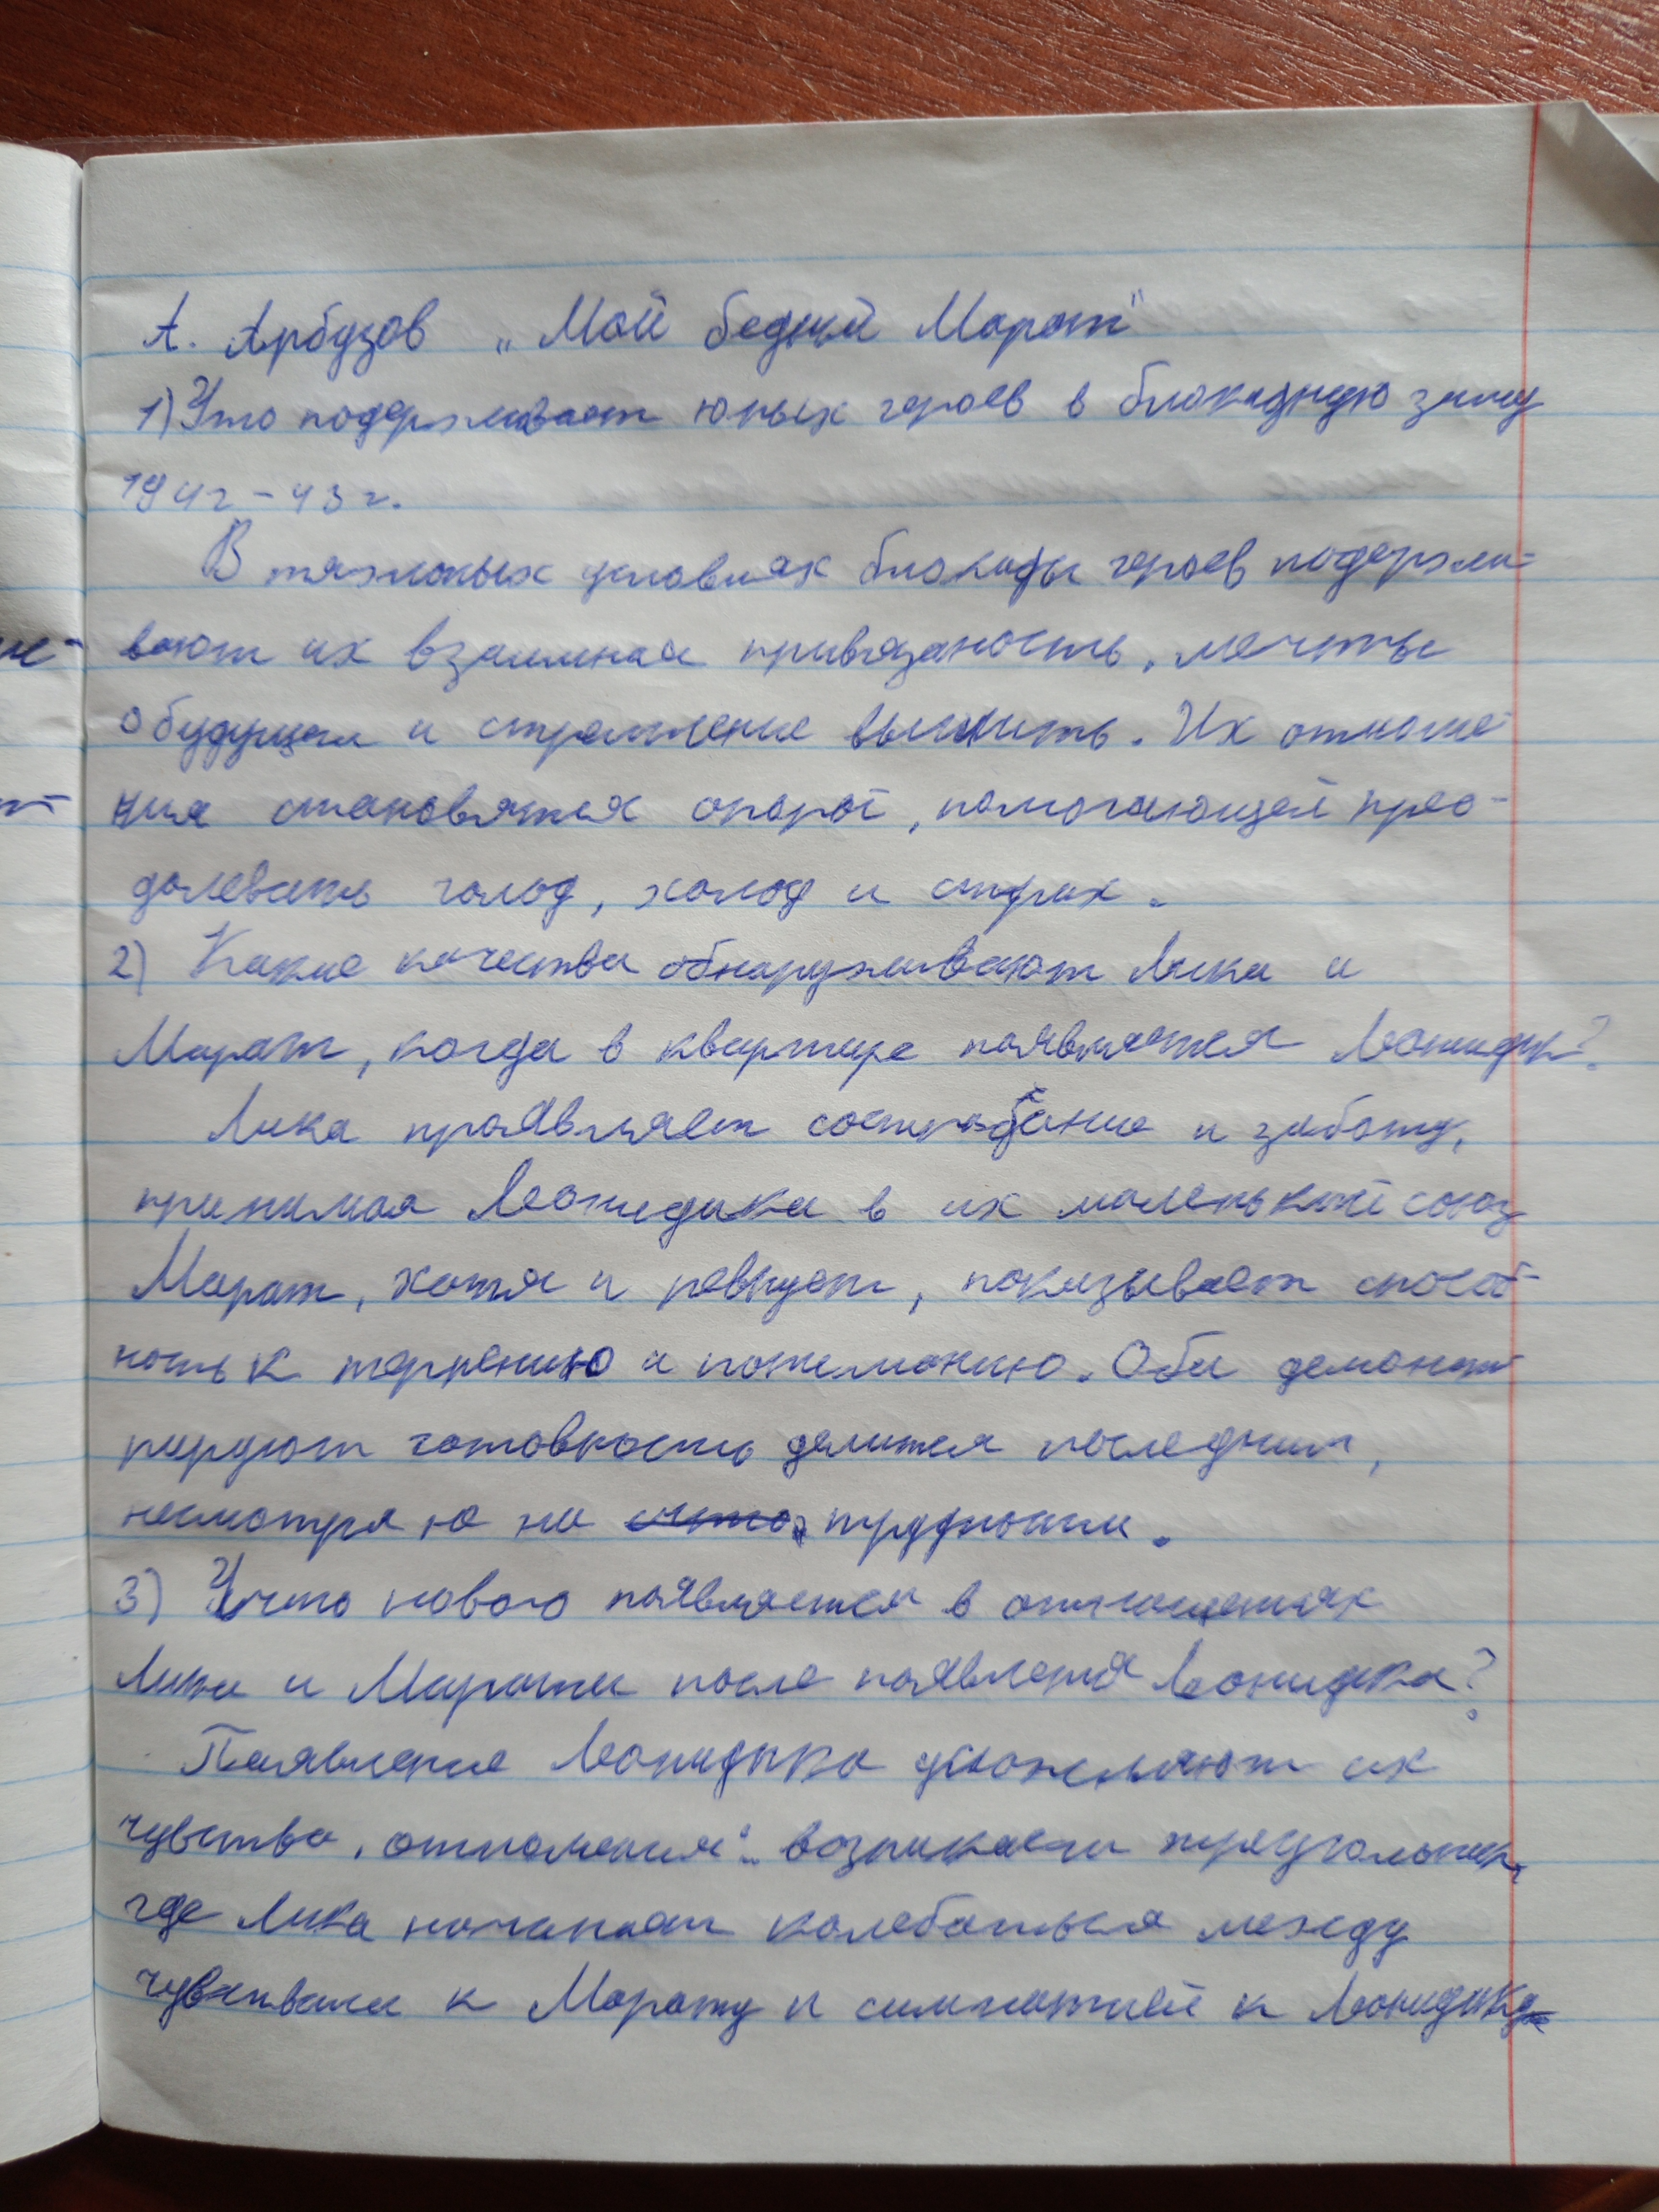 А. Арбузов „Мой бедный Марат"
1) Что подерживает юных героев в блокадную зиму
1942-43г.
В тяжолых условиях блокады героев подержи-
вают их взаимная привязаность, мечты
о будущем и стремление выжить. Их отноше-
ния становятся опорой, помогающей прео-
долевать голод, холод и страх.
2) Какие качества обнаруживают Лика и
Марат, когда в квартире появляется Леонидик?
Лика проявляет сострадание и заботу,
принимая Леонидика в их маленький союз
Марат, хотя и ревнует, показывает способ-
ность к терпению и пониманию. Оба демонст-
рируют готовность делится последним,
несмотря на трудности.
3) Что нового появляется в отношениях
Лики и Марата после появления Леонидика?
Появление Леонидика усложняют их
чувства, отношения: возникает треугольник,
где Лика начинает колебаться между
чувствами к Марату и симпатией к Леонидику